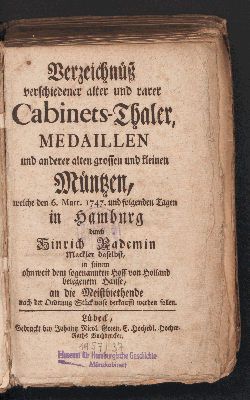 Verzeichnüß
verschiedener alter und rarer
Cabinets-Thaler,
MEDAILLEN
und anderer alten grossen und kleinen
Müntzen,
welche den 6. Mart. 1747. und folgenden Tagen
in Hamburg
durch
Hinrich Rademin
Mackler daselbst,
in seinem
ohnweit dem sogenannten Hoff von Holland
belegenem Hause,
an die Meistbiethende
nach der Ordnung Stückweise verkaufft werden sollen.
Lübeck,
Gedruckt bey Johann Nicol. Green, E. Hochedl. Hochw.
Raths Buchdrucker.
1957/37
Museum für Hamburgische Geschichte
Münzkabinett